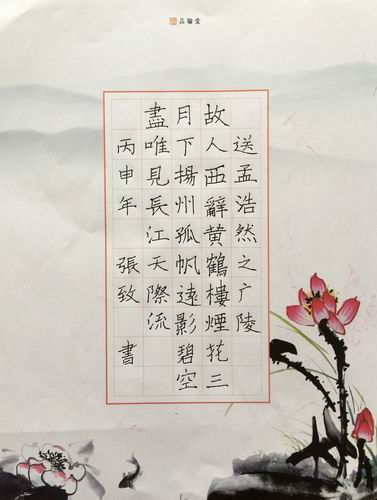 品翰堂
送孟浩然之广陵
故人西辭黄鶴樓煙花三
月下揚州孤帆遠影碧空
盡唯見長江天際流
丙申年 張致 書